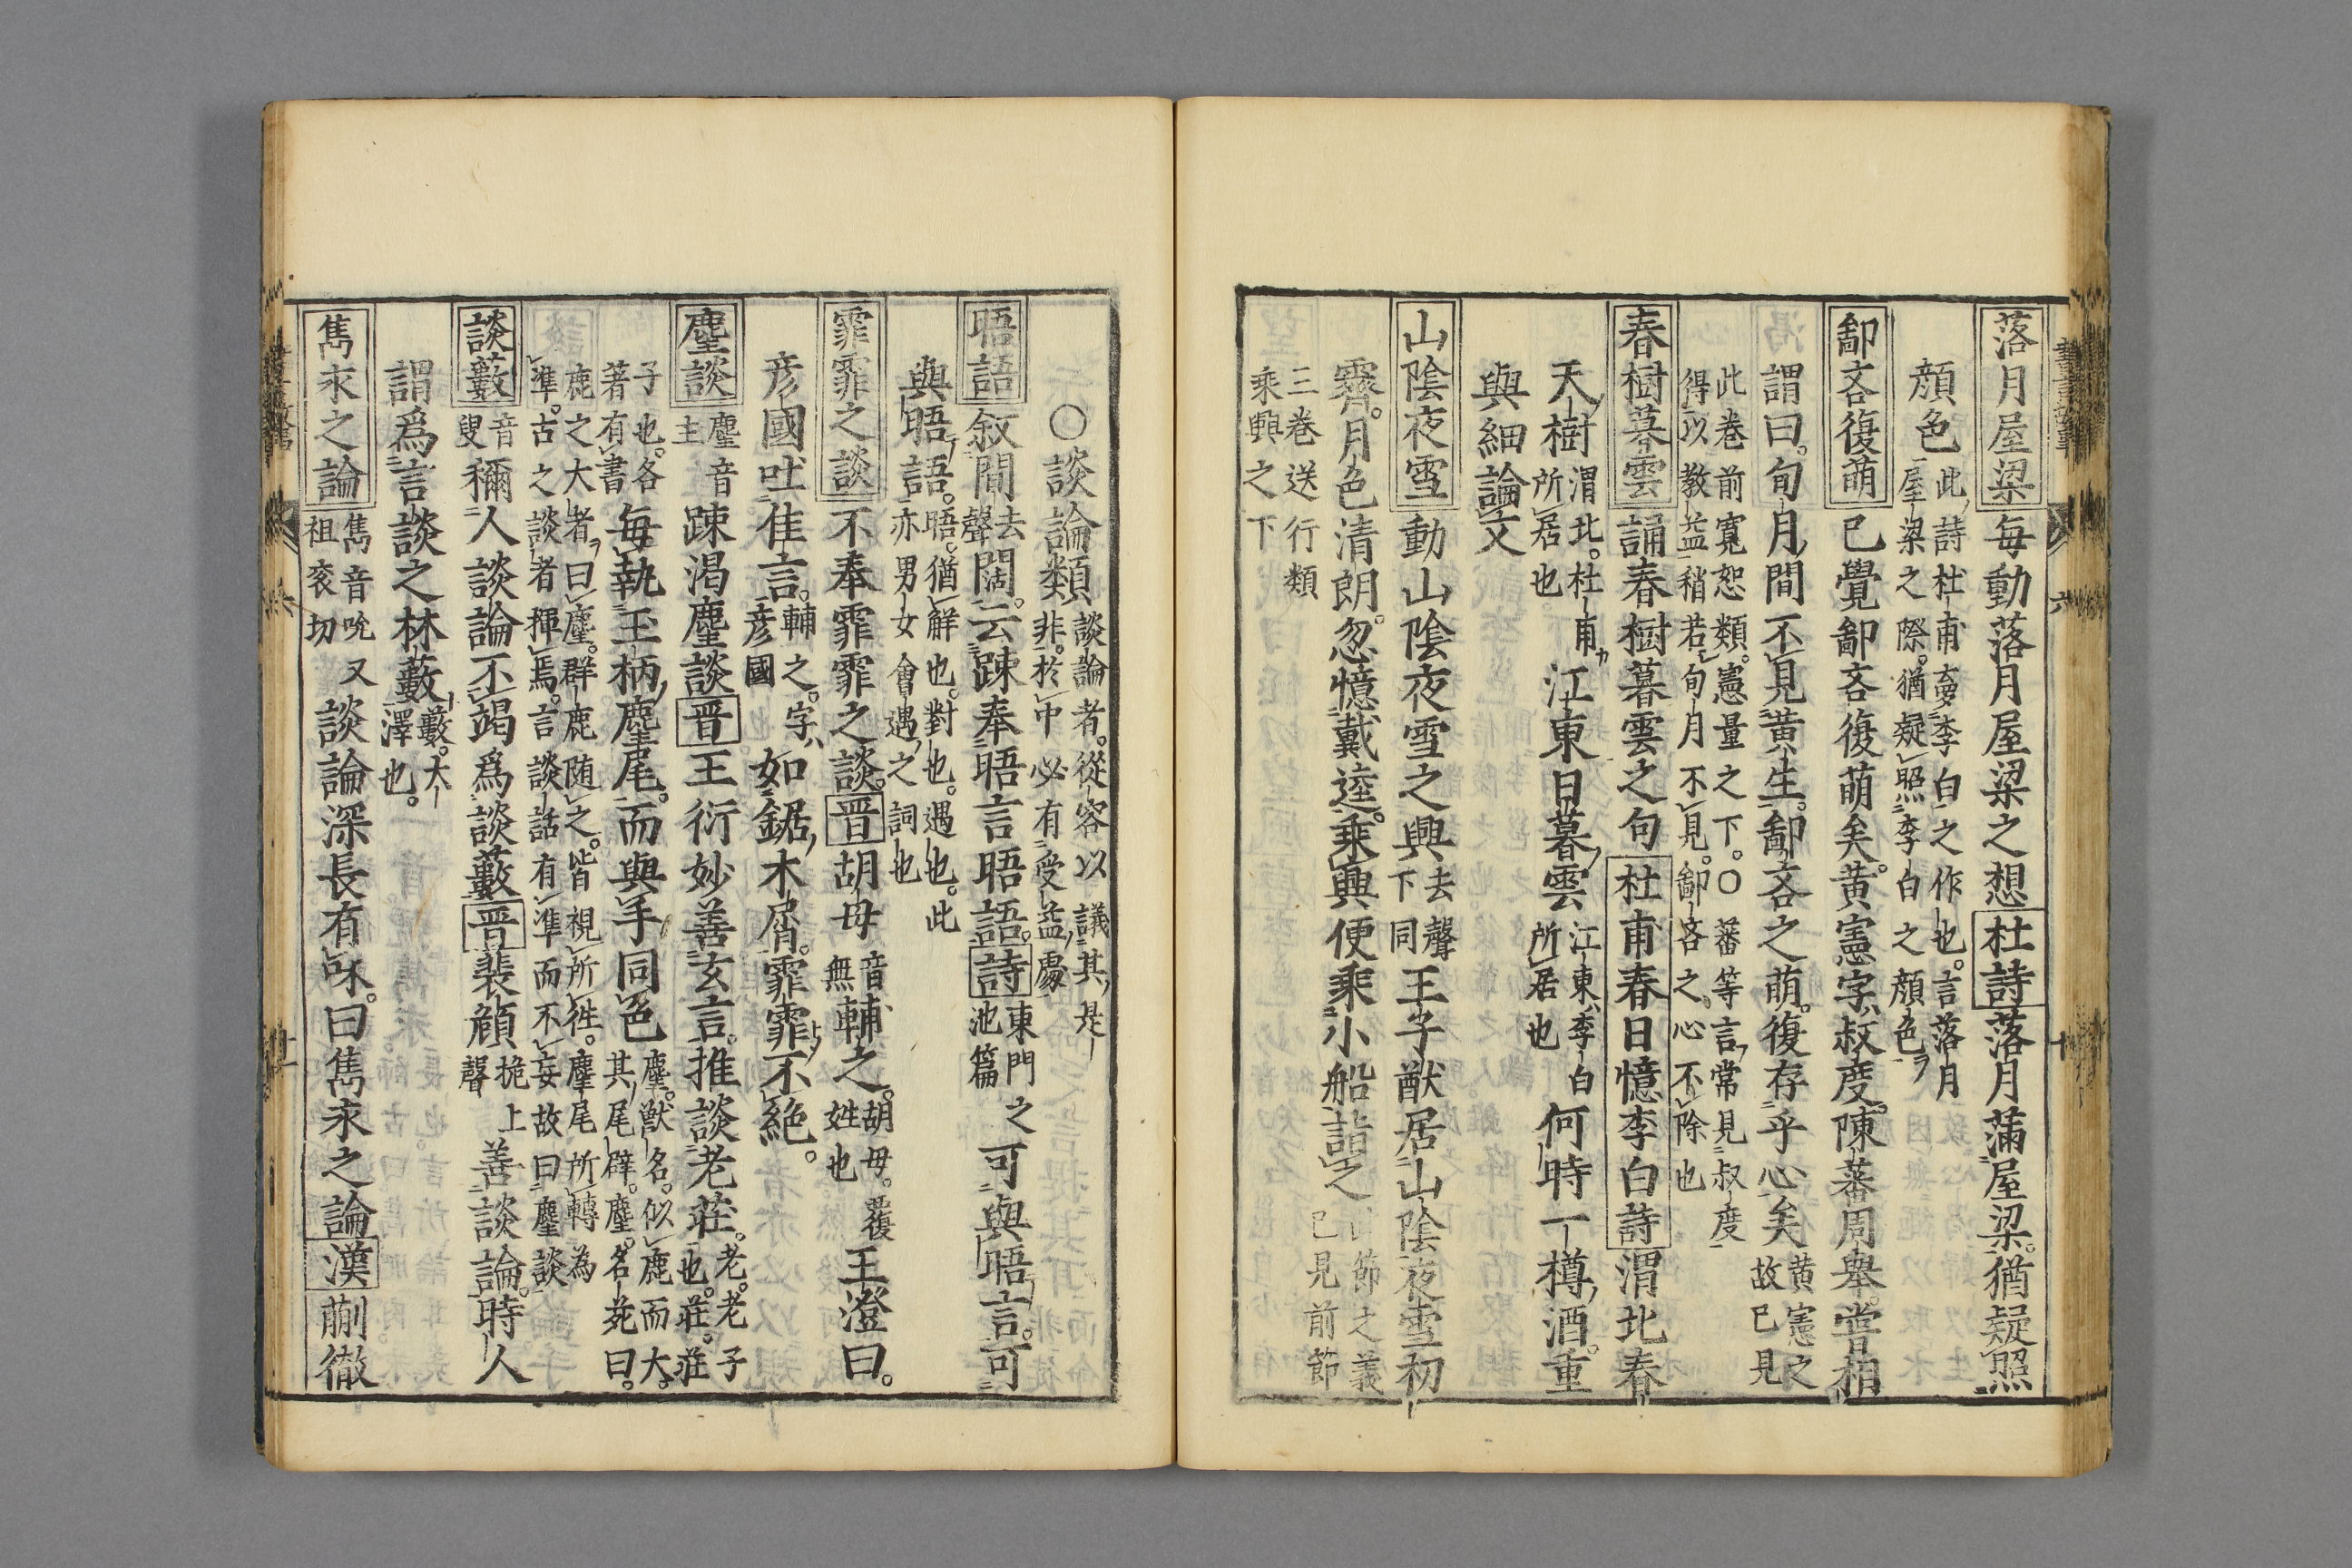 落月屋梁每動落月屋梁之想杜詩落月蒲屋梁猶疑照
顔色此詩杜甫夣李白之作也言落月
屋梁之際猶凝照李白之顔色
鄙吝復萌已覺鄙吝復萌矣黄憲字叔度陳蕃周舉嘗相
謂曰旬月間不見黄生鄙吝之萌復存乎心矣黄憲之
故已見
此巻前寛恕類憲量之下○蕃等言常見叔度
得以教益稍若旬月不見鄙吝之心不除也
春樹暮雲誦春樹暮雲之句杜甫春日憶李白詩渭北春
天樹渭北杜甫
所居也江東日暮雲江東李白
所居也何時一樽酒重
與細論文
山陰夜雪動山陰夜雪之興去聲
下同王子猷居山陰夜雪初
霽月色清朗忽憶戴逵乘興便乘小船詣之山節之義
已見前節
三巻送行類
乘興之下
○談論類談論者從容以議其是
非於中必有受益處
晤語叙間去
聲闊云踈奉晤言晤語詩東門之
池篇可與晤言可
與晤語晤猶解也對也遇也此
亦男女會遇之詞也
霏霏之談不奉霏霏之談晋胡母音
無輔之胡母覆
姓也王澄曰
彦國吐佳言輔之字
彦國如鋸木屑霏霏不絶
麈談麈音
主踈渇麈談晋王衍妙善玄言推談老莊老老子
也莊莊
子也各
著有書每執玉柄麈尾而與手同色麈獣名似鹿而大
其尾辟塵名苑曰
鹿之大者曰麈群鹿随之皆視所徃麈尾所轉為
準古之談者揮焉言談話有準而不妄故曰麈談
談藪音
叟稱人談論不竭爲談藪晋裴頠桅上
聲善談論時人
謂爲言談之林藪藪大
澤也
雋永之論雋音吮又
祖兖切談論深長有味曰雋永之論漢蒯徹